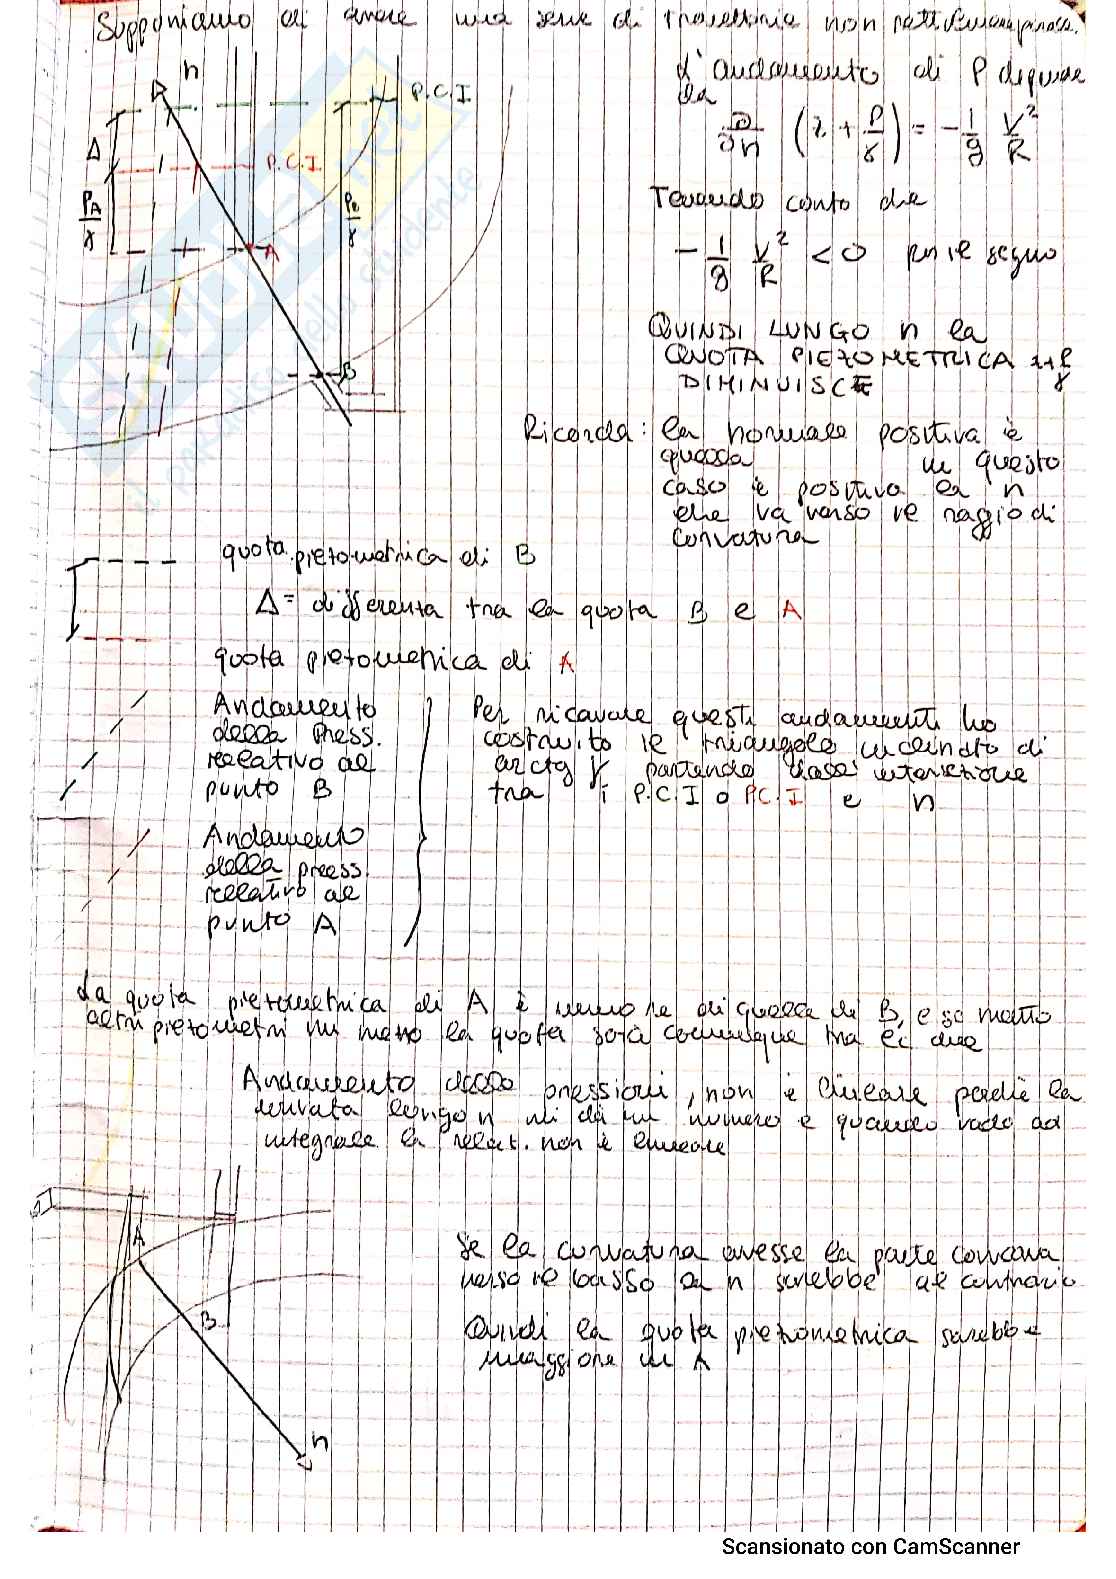 Supponiamo di avere una serie di traiettorie non rettilinee
n
P.C.I
Δ
P.C.I
PA/γ
PB/γ
A
B
L'andamento di P dipende
da
∂/∂n (z + P/γ) = - 1/g V²/R
Tenendo conto che
- 1/g V²/R < 0 per il segno
QUINDI LUNGO n la
QUOTA PIEZOMETRICA z+P/γ
DIMINUISCE
Ricorda: la normale positiva è
questa in questo
caso è positiva la n
che va verso il raggio di
curvatura
quota piezometrica di B
Δ = differenza tra la quota B e A
quota piezometrica di A
Andamento
della Press.
relativo al
punto B
Andamento
della press.
relativo al
punto A
Per ricavare questi andamenti ho
costruito il triangolo inclinato di
arctg γ partendo dall'intersezione
tra i P.C.I o P.C.I e n
La quota piezometrica di A è minore di quella di B, e se metto
altri piezometri in mezzo la quota sarà comunque tra le due
Andamento delle pressioni, non è lineare perché la
derivata lungo n mi dà un numero e quando vado ad
integrale la relaz. non è lineare
A
B
n
Se la curvatura avesse la parte concava
verso il basso la n sarebbe al contrario
Quindi la quota piezometrica sarebbe
maggiore in A
Scansionato con CamScanner